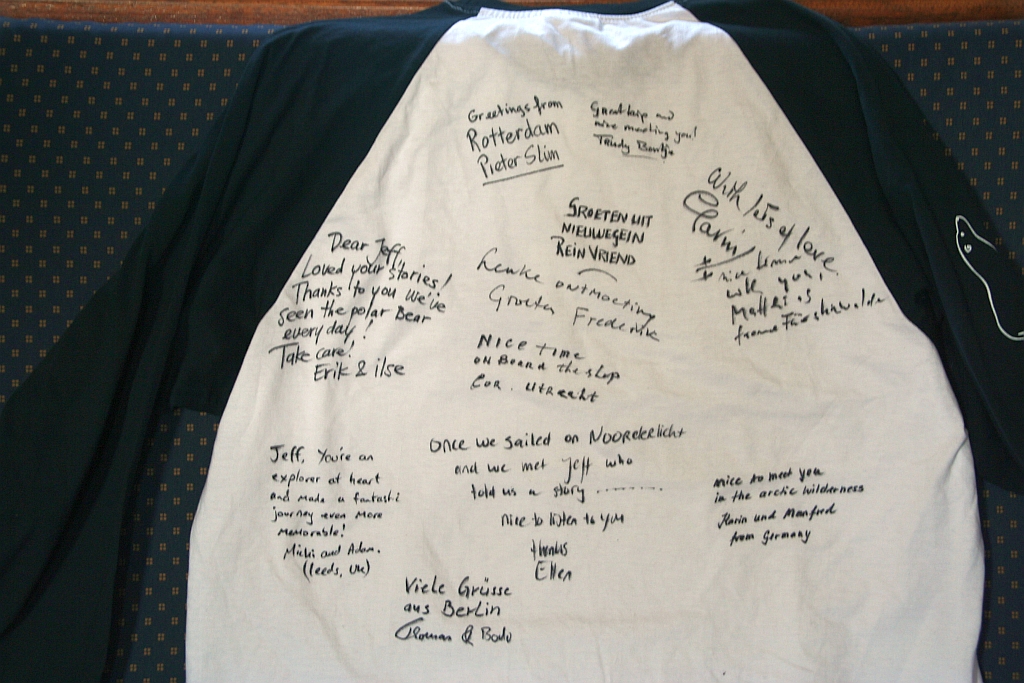 Greetings from
Rotterdam
Pieter Slim
Great trip and
nice meeting you!
Trudy
With lots of love
nice
with you,
from
GROETEN UIT
NIEUWEGEIN
REIN VRIEND
Leuke ontmoeting
Groeten Frederike
Dear Jeff,
Loved your stories!
Thanks to you we've
seen the polar Bear
every day!
Take care!
Erik & ilse
Nice time
on Board the ship
Cor. Utrecht
Jeff, You're an
explorer at heart
and made a fantasti
journey even more
memorable!
Micki and Adam.
(Leeds, UK)
Once we sailed on NOORderlicht
and we met Jeff who
told us a story .........
nice to listen to you
thanks
Ellen
nice to meet you
in the arctic wilderness
Karin und Manfred
from Germany
Viele Grüsse
aus Berlin
Thomas & Bodo